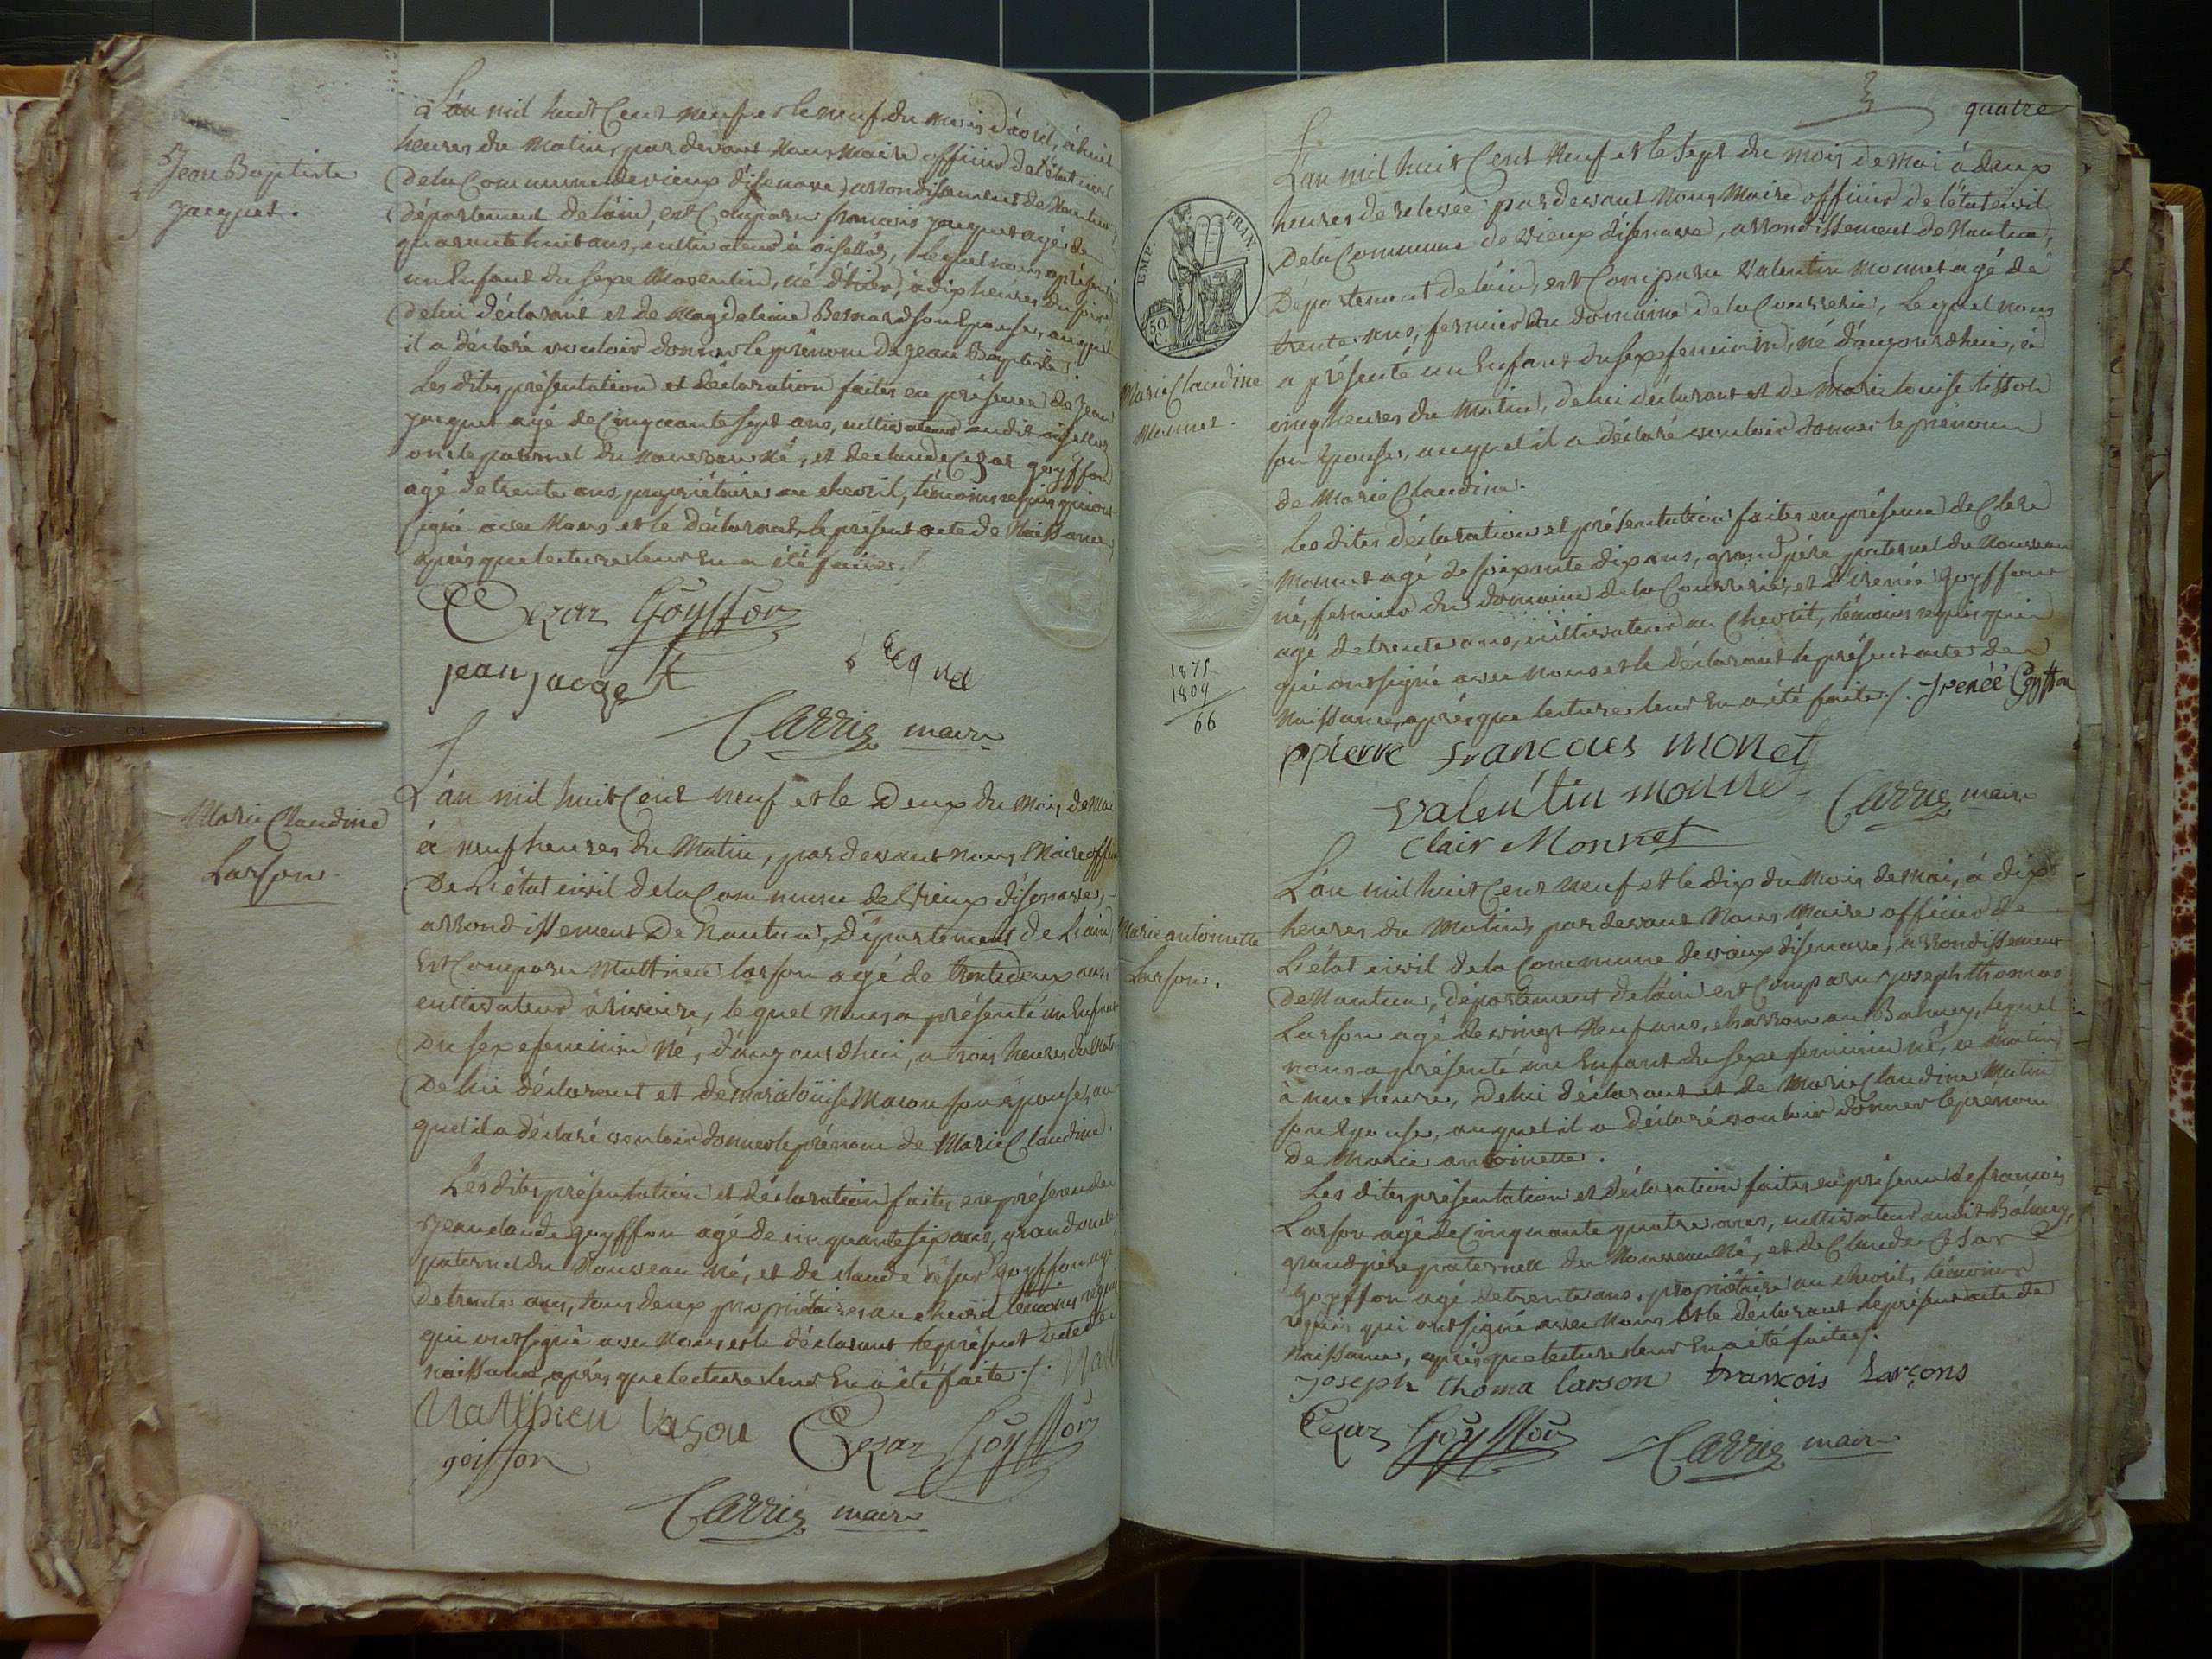 Jean Baptiste
jacquet.
L'an mil huit Cent neuf et le neuf du mois d'avril, à huit
heures du Matin, par devant Nous Maire officier de l'état civil
De la Commune de vieux d'isenave, arrondissement de Nantua,
Département de l'ain, est Comparu françois jacquet agé de
quarante huit ans, cultivateur à oisellaz, lequel nous a présenté
un Enfant du sexe Masculin, né d'hier, à dix heures du soir
De lui déclarant et de Magdelaine Bernard son Epouse, auquel
il a déclaré vouloir donner le prénom de jean Baptiste.
Les dites présentation et Déclaration faites en présence de jean
jacquet agé de Cinquante sept ans, cultivateur audit oisellaz
oncle paternel du Nouveau Né, et de claude Cezar goyffon
agé de trente ans, propriétaire au chevril, témoins requis qui ont
signé avec Nous et le Déclarant, le présent acte de Naissance
après que lecture leur En a été faite ./.
Cezar Goyffon
jean jacquet
Carrig maire
Marie Claudine
Larson.
L'an mil huit Cent neuf et le Deux du Mois de Mai
à neuf heures du Matin, par devant nous Maire officier
De L'état civil de la Commune de Vieux d'isenave,
arrondissement De Nantua, Département de L'ain,
Est Comparu Mathieu larson agé de trente deux ans,
cultivateur à rivoire, lequel Nous a présenté un Enfant
Du sexe feminin Né, d'aujourdhui, a trois heures du Matin
De lui déclarant et de marie loüise Macon son épouse, au
quel il a déclaré vouloir donner le prénom de Marie Claudine.
Les dites présentation et déclaration faites en présence de
Jean claude goyffon agé de cinquante six ans, grand oncle
paternel du Nouveau né, et de claude cesar goyffon agé
de trente ans, tous deux propriétaires au chevril témoins requis
qui ont signé avec Nous et le déclarant le présent acte de
naissance, après que lecture leur En a été faite ./.
Matthieu lason Cezar Goyffon
goiffon
Carrig maire
quatre
EMP. FRAN.
50 C.
Marie Claudine
Monnet.
L'an mil huit Cent Neuf et le sept du mois de Mai à deux
heures de relevée par devant Nous Maire officier de l'état civil
De la Commune de Vieux d'isenave, arrondissement de Nantua,
Département de l'ain, est Comparu Valentin Monnet agé de
trente ans, fermier du domaine de la Courrerie, Lequel nous
a présenté un Enfant du sexe feminin, né d'aujourdhui, à
cinq heures du Matin, de lui déclarant et de Marie louise tisson
son Epouse, auquel il a déclaré vouloir donner le prénom
de Marie Claudine.
Les dites déclaration et présentation faites en présence de Clere
Monnet agé de soixante dix ans, grand père paternel du Nouveau
né, fermier du domaine de la Courrerie, et d'irenée Goyffon
agé de trente ans, cultivateur au Chevril, témoins requis
qui ont signé avec Nous et le déclarant le présent acte de
Naissance, après que lecture leur En a été faite ./. Irenée Goyffon
1875
1809
66
ppierre Francois monet
valentin monne Carrig maire
Clair Monnet
Marie antoinette
Larson.
L'an mil huit Cent neuf et le dix du Mois de Mai, à dix
heures du Matin, par devant Nous Maire officier de
L'état civil de la Commune de vieux d'isenave, arrondissement
De Nantua, département de l'ain est Comparu joseph thomas
Larson agé de vingt Neuf ans, charron au Balmey, lequel
nous a présenté un Enfant du sexe feminin né, ce Matin
à une heure, De lui déclarant et de Marie Claudine Mutin
son Epouse, auquel il a déclaré vouloir donner le prénom
de Marie antoinette.
Les dites présentation et déclaration faites en présence de françois
Larson agé de Cinquante quatre ans, cultivateur audit Balmey,
grand père paternel du Nouveau Né, et de Claude Cesar
Goyffon agé de trente ans, propriétaire au chevril, témoins
requis qui ont signé avec Nous et le déclarant le présent acte de
Naissance, après que lecture leur En a été faite ./.
Joseph thoma larson francois Larçons
Cezar Goyffon Carrig maire